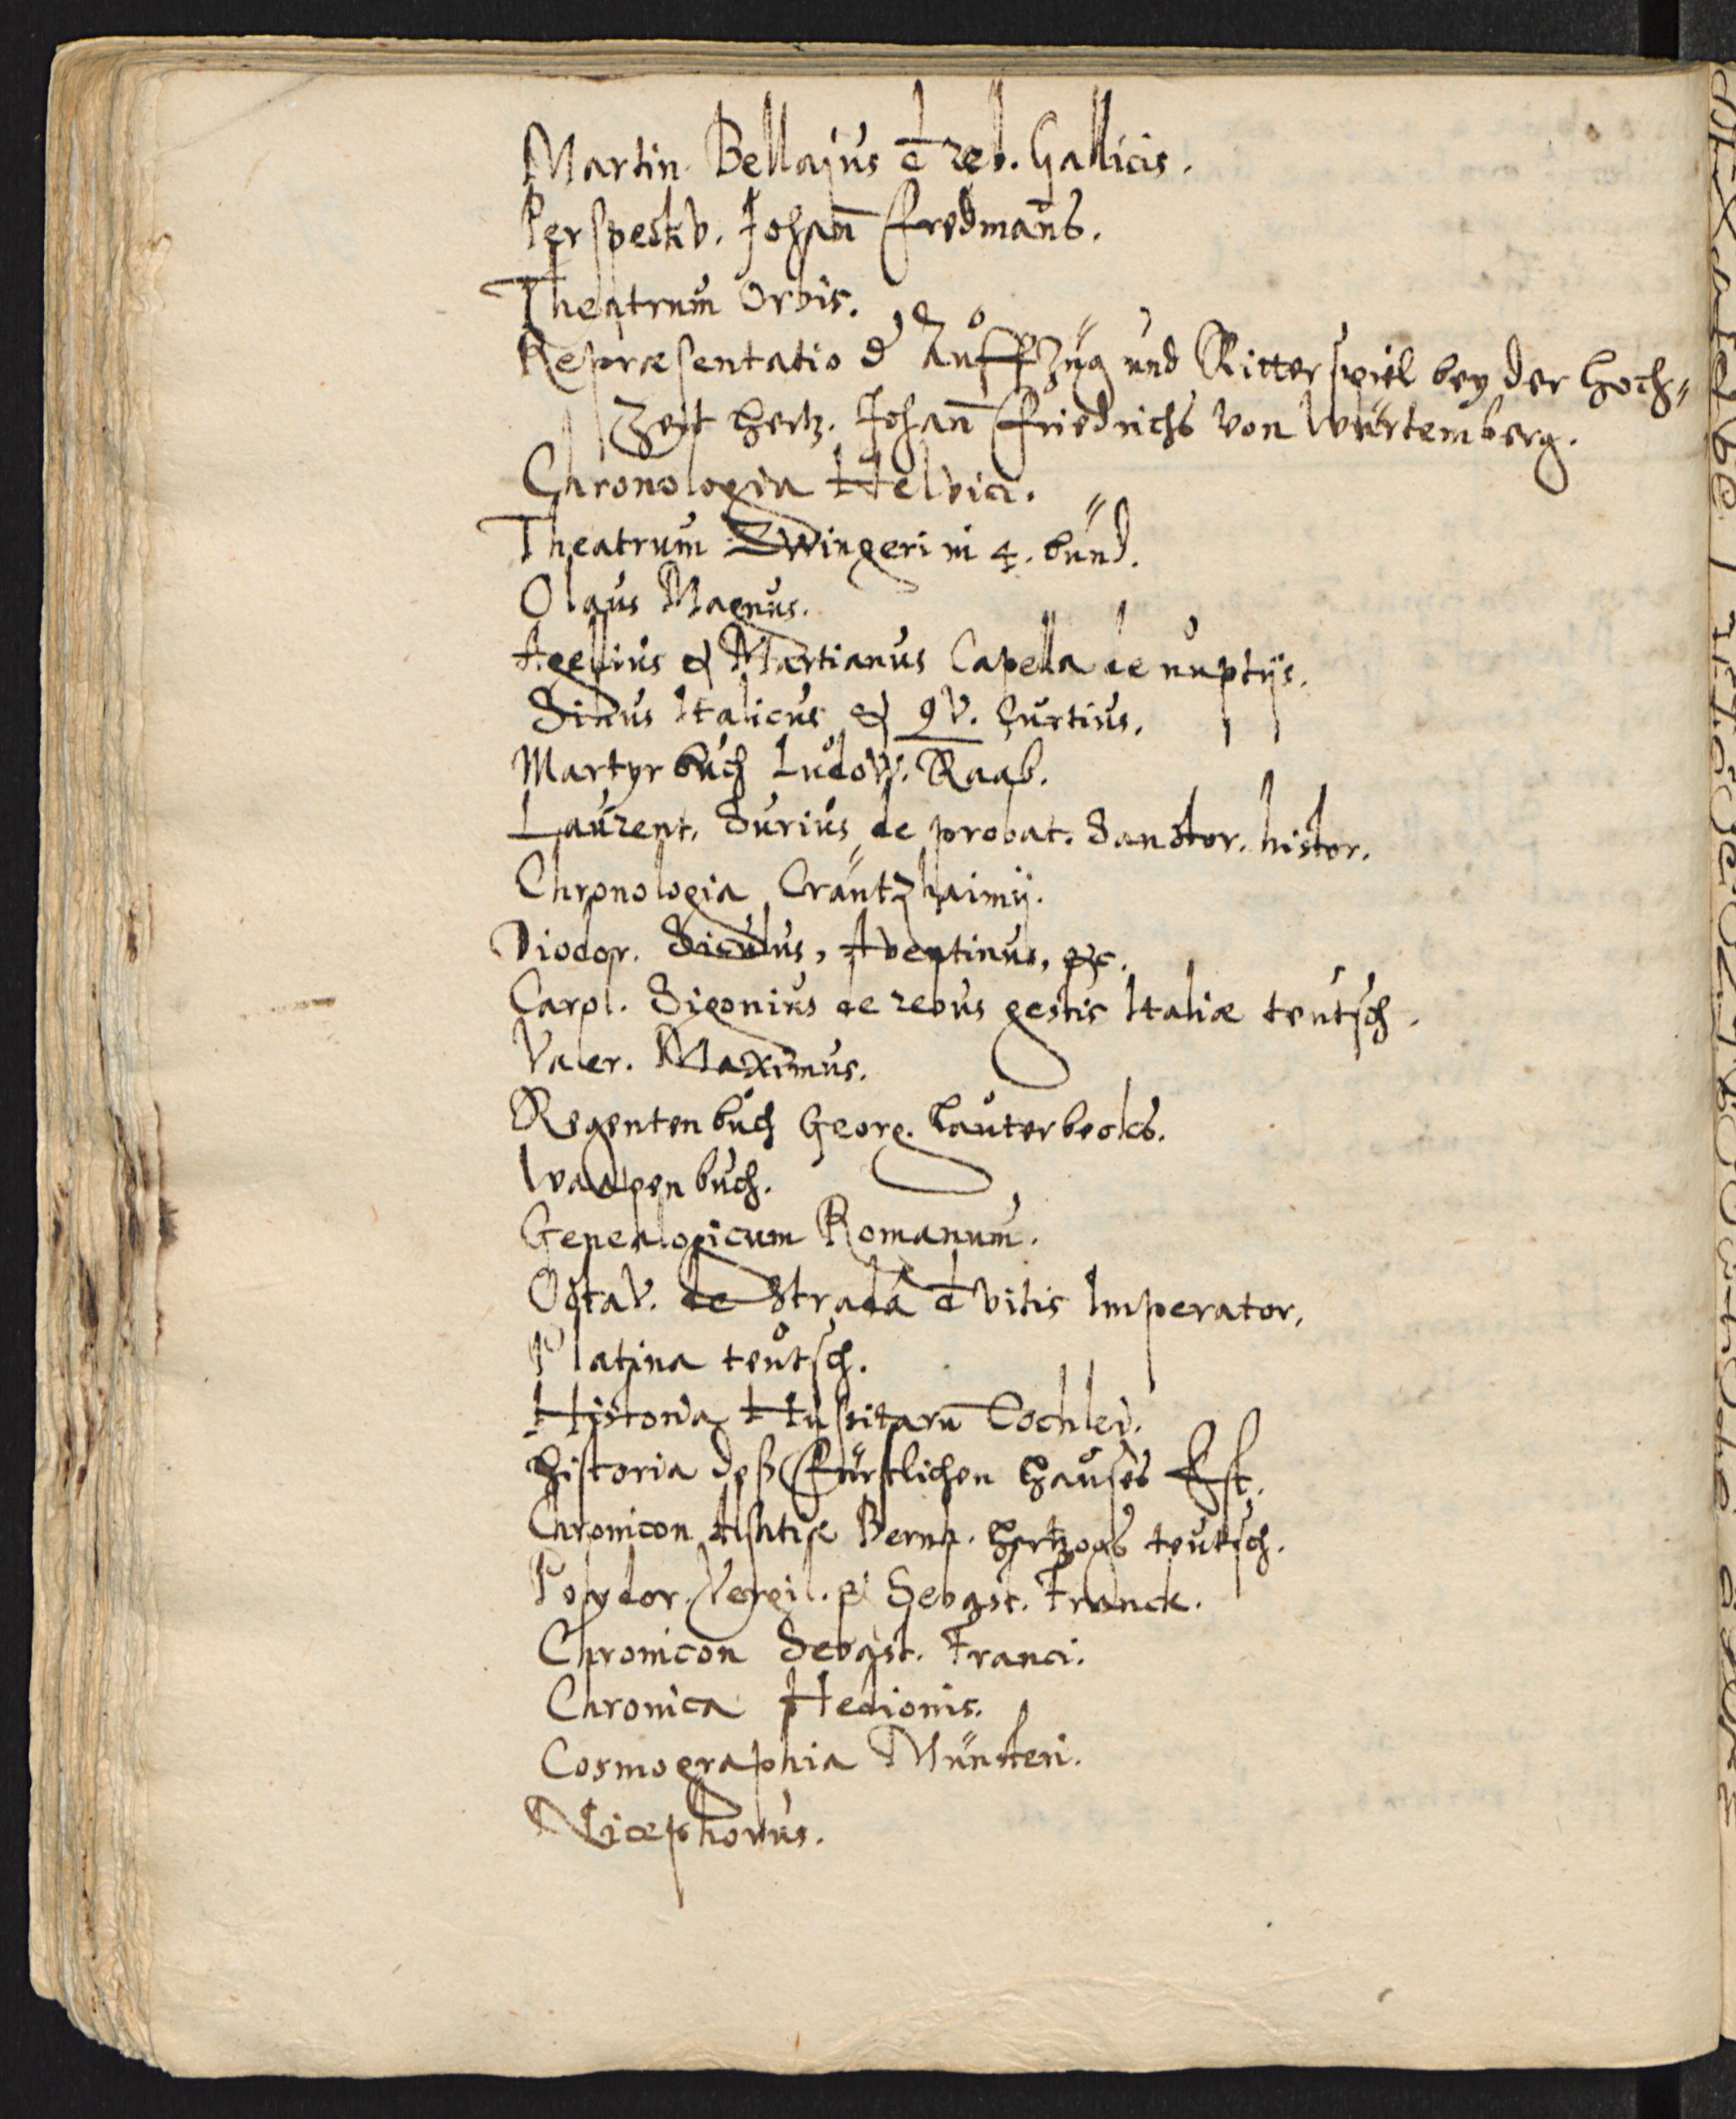 Martin. Bellajus de reb. Gallicis.
Perspectiv. Johan̄ Fredman̄s.
Theatrum Orbis.
Repræsentatio d' Auffzüg und Ritterspiel bey der Hoch⸗
Zeyt Hertz. Johan̄ Friedrichs von Würtemberg.
Chronologia Helvici.
Theatrum Zwingeri in 4. bünd.
Olaus Magnus.
Agellius & Martianus Capella de nuptijs.
Silius Italicus & QV. Curtius.
Martyrbuch Ludow. Raab.
Laurent. Surius de probat. Sanctor. histor.
Chronologia Cräntzhaimij.
Diodor. Siculus, Aventinus, &c.
Carol. Sigonius de rebus gestis Italiæ teutsch.
Valer. Maximus.
Regentenbuch Georg. Lauterbecks.
Wappenbuch.
Genealogicum Romanum.
Octav. de Strada de vitis Imperator.
Platina teutsch.
Historia Hussitarū Cochlei.
Historia deß Fürstlichen Hauses Est.
Chronicon Alsatiæ Bernh. Hertzogs teutsch.
Polydor. Vergil. & Sebast. Franck.
Chronicon Sebast. Franci.
Chronica Hedionis.
Cosmographia Münsteri.
Nicephorus.